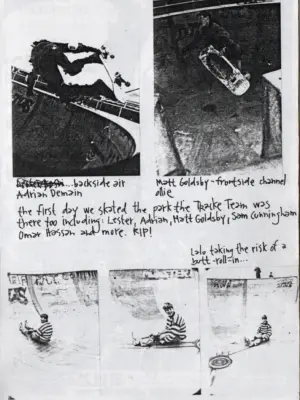 ...backside air
Adrian Demain
Matt Goldsby - frontside channel
the first day we skated the park the Tracke Team was
there too including: Lester, Adrian, Matt Goldsby, Sam Cunningham
Omar Hassan and more. RIP!
Lalo taking the risk of a
butt-roll-in...